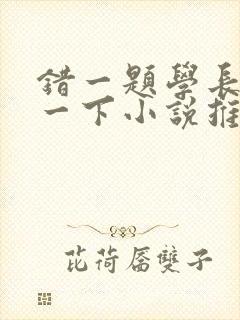 錯一題學長
一下小說推
芘荷靥雙子